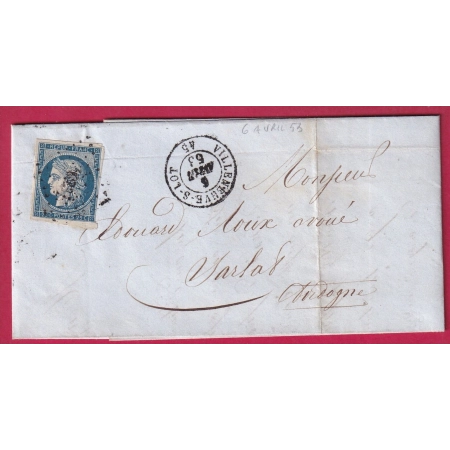 6 AVRIL 53
REPUB FRANC
VILLENEUVE-S-LOT
6
AVRIL
53
45
Monsieur
Edouard Roux avoué
Sarlat
Dordogne